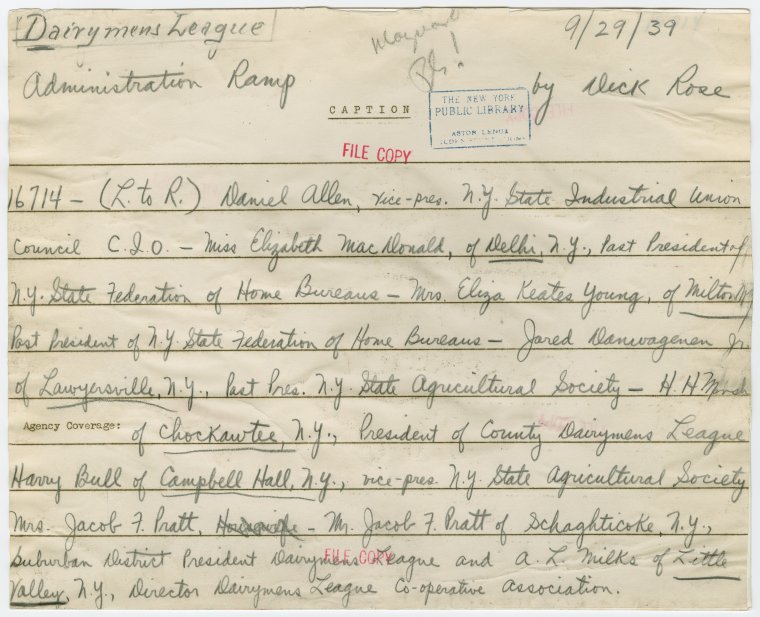 Dairymens League
9/29/39
Administration Ramp
by Dick Rose
CAPTION
THE NEW YORK
PUBLIC LIBRARY
ASTOR LENOX
FILE COPY
16714 - (L. to R.) Daniel Allen, vice-pres. N.Y. State Industrial Union
Council C.I.O. - Miss Elizabeth MacDonald, of Delhi, N.Y., Past President of
N.Y. State Federation of Home Bureaus - Mrs. Eliza Keates Young, of Milton NY
Past President of N.Y. State Federation of Home Bureaus - Jared Danwagenen Jr.
of Lawyersville, N.Y., Past Pres. N.Y. State Agricultural Society - H. H Marsh
Agency Coverage: of Chockawtee, N.Y., President of County Dairymens League
Harry Bull of Campbell Hall, N.Y., vice-pres. N.Y. State Agricultural Society
Mrs. Jacob F. Pratt, Housewife - Mr. Jacob F. Pratt of Schaghticoke, N.Y.,
Suburban District President Dairymens League and A. L. Milks of Little
FILE COPY
Valley, N.Y., Director Dairymens League Co-operative Association.